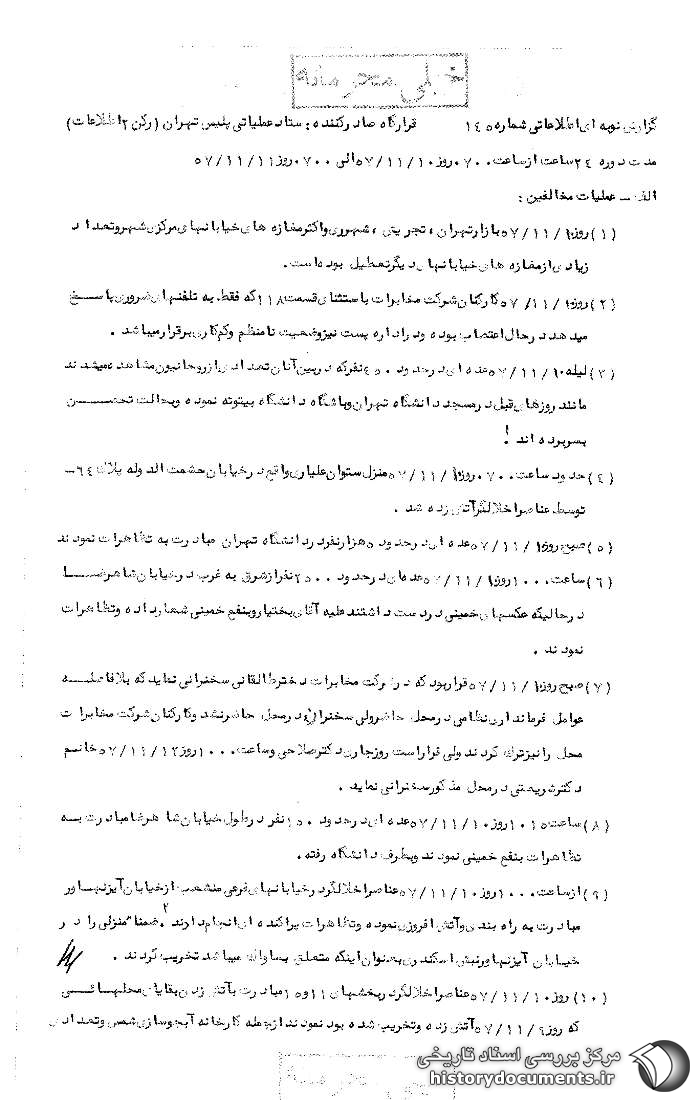 خیلی محرمانه
گزارش نوبه ای اطلاعاتی شماره ۱۴۵ قرارگاه صادرکننده : ستاد عملیاتی پلیس تهران ( رکن ۲ اطلاعات )
مدت دوره ۲۴ ساعت از ساعت ۰۷۰۰ روز ۵۷/۱۱/۱۰ الی ۰۷۰۰ روز ۵۷/۱۱/۱۱
الف ـ عملیات مخالفین :
(۱) روز ۵۷/۱۱/۱۰ بازار تهران ، تجریش ، شهرری و اکثر مغازه های خیابانهای مرکزی شهر و تعداد
زیادی از مغازه های خیابانهای دیگر تعطیل بوده است .
(۲) روز ۵۷/۱۱/۱۰ کارکنان شرکت مخابرات با ستثنای قسمت ۱۱۸ که فقط به تلفنهای ضروری پاسخ
میدهد در حال اعتصاب بوده و در اداره پست نیز وضعیت نامنظم و کم کاری برقرار میباشد .
(۳) لیله ۵۷/۱۱/۱۰ عده ای در حدود ۴۵۰ نفر که در بین آنان تعدادی از روحانیون مشاهده میشدند
مانند روزهای قبل در مسجد دانشگاه تهران و باشگاه دانشگاه بیتوته نموده و بحالت تحصن
بسر برده اند !
(۴) حدود ساعت ۰۷۰۰ روز ۵۷/۱۱/۱۰ منزل ستوان علیاری واقع در خیابان حشمت الدوله پلاک ۶۴ ـ
توسط عناصر اخلالگر آتش زده شد .
(۵) صبح روز ۵۷/۱۱/۱۰ عده ای در حدود ۵ هزار نفر در دانشگاه تهران مبادرت به تظاهرات نمودند
(۶) ساعت ۱۰۰۰ روز ۵۷/۱۱/۱۰ عده ای در حدود ۲۵۰۰ نفر از شرق به غرب در خیابان شاهرضا
در حالیکه عکسهای خمینی در دست داشتند علیه آقای بختیار و بنفع خمینی شعار داده و تظاهرات
نمودند .
(۷) صبح روز ۵۷/۱۱/۱۰ قرار بود که در شرکت مخابرات دختر طالقانی سخنرانی نماید که بلافاصله
عوامل فرمانداری نظامی در محل حاضر ولی سخنران در محل حاضر نشد و کارکنان شرکت مخابرات
محل را نیز ترک کردند ولی قرار است روز جاری دکتر صلاحی و ساعت ۱۰۰۰ روز ۵۷/۱۱/۱۲ خانم
دکتر شریعتی در محل مذکور سخنرانی نماید .
(۸) ساعت ۱۰۱۵ روز ۵۷/۱۱/۱۰ عده ای در حدود ۱۵۰ نفر در طول خیابان شاهرضا مبادرت به
تظاهرات بنفع خمینی نمودند و بطرف دانشگاه رفته .
(۹) از ساعت ۱۰۰۰ روز ۵۷/۱۱/۱۰ عناصر اخلالگر در خیابانهای فرعی منشعب از خیابان آیزنهاور
مبادرت به راه بندی و آتش افروزی نموده و تظاهرات پراکنده ای انجام دارند . ضمنا منزلی را در
خیابان آیزنهاور نبش اسکندری بعنوان اینکه متعلق بساواک میباشد تخریب کردند .
(۱۰) روز ۵۷/۱۱/۱۰ عناصر اخلالگر در بخشهای ۱۱ و ۱۵ مبادرت بآتش زدن بقایای محلهائی
که روز ۵۷/۱۱/۹ آتش زده و تخریب شده بود نمودند از جمله کارخانه آبجوسازی شمس و تعدادی
خیلی محرمانه
مرکز بررسی اسناد تاریخی
historydocuments.ir